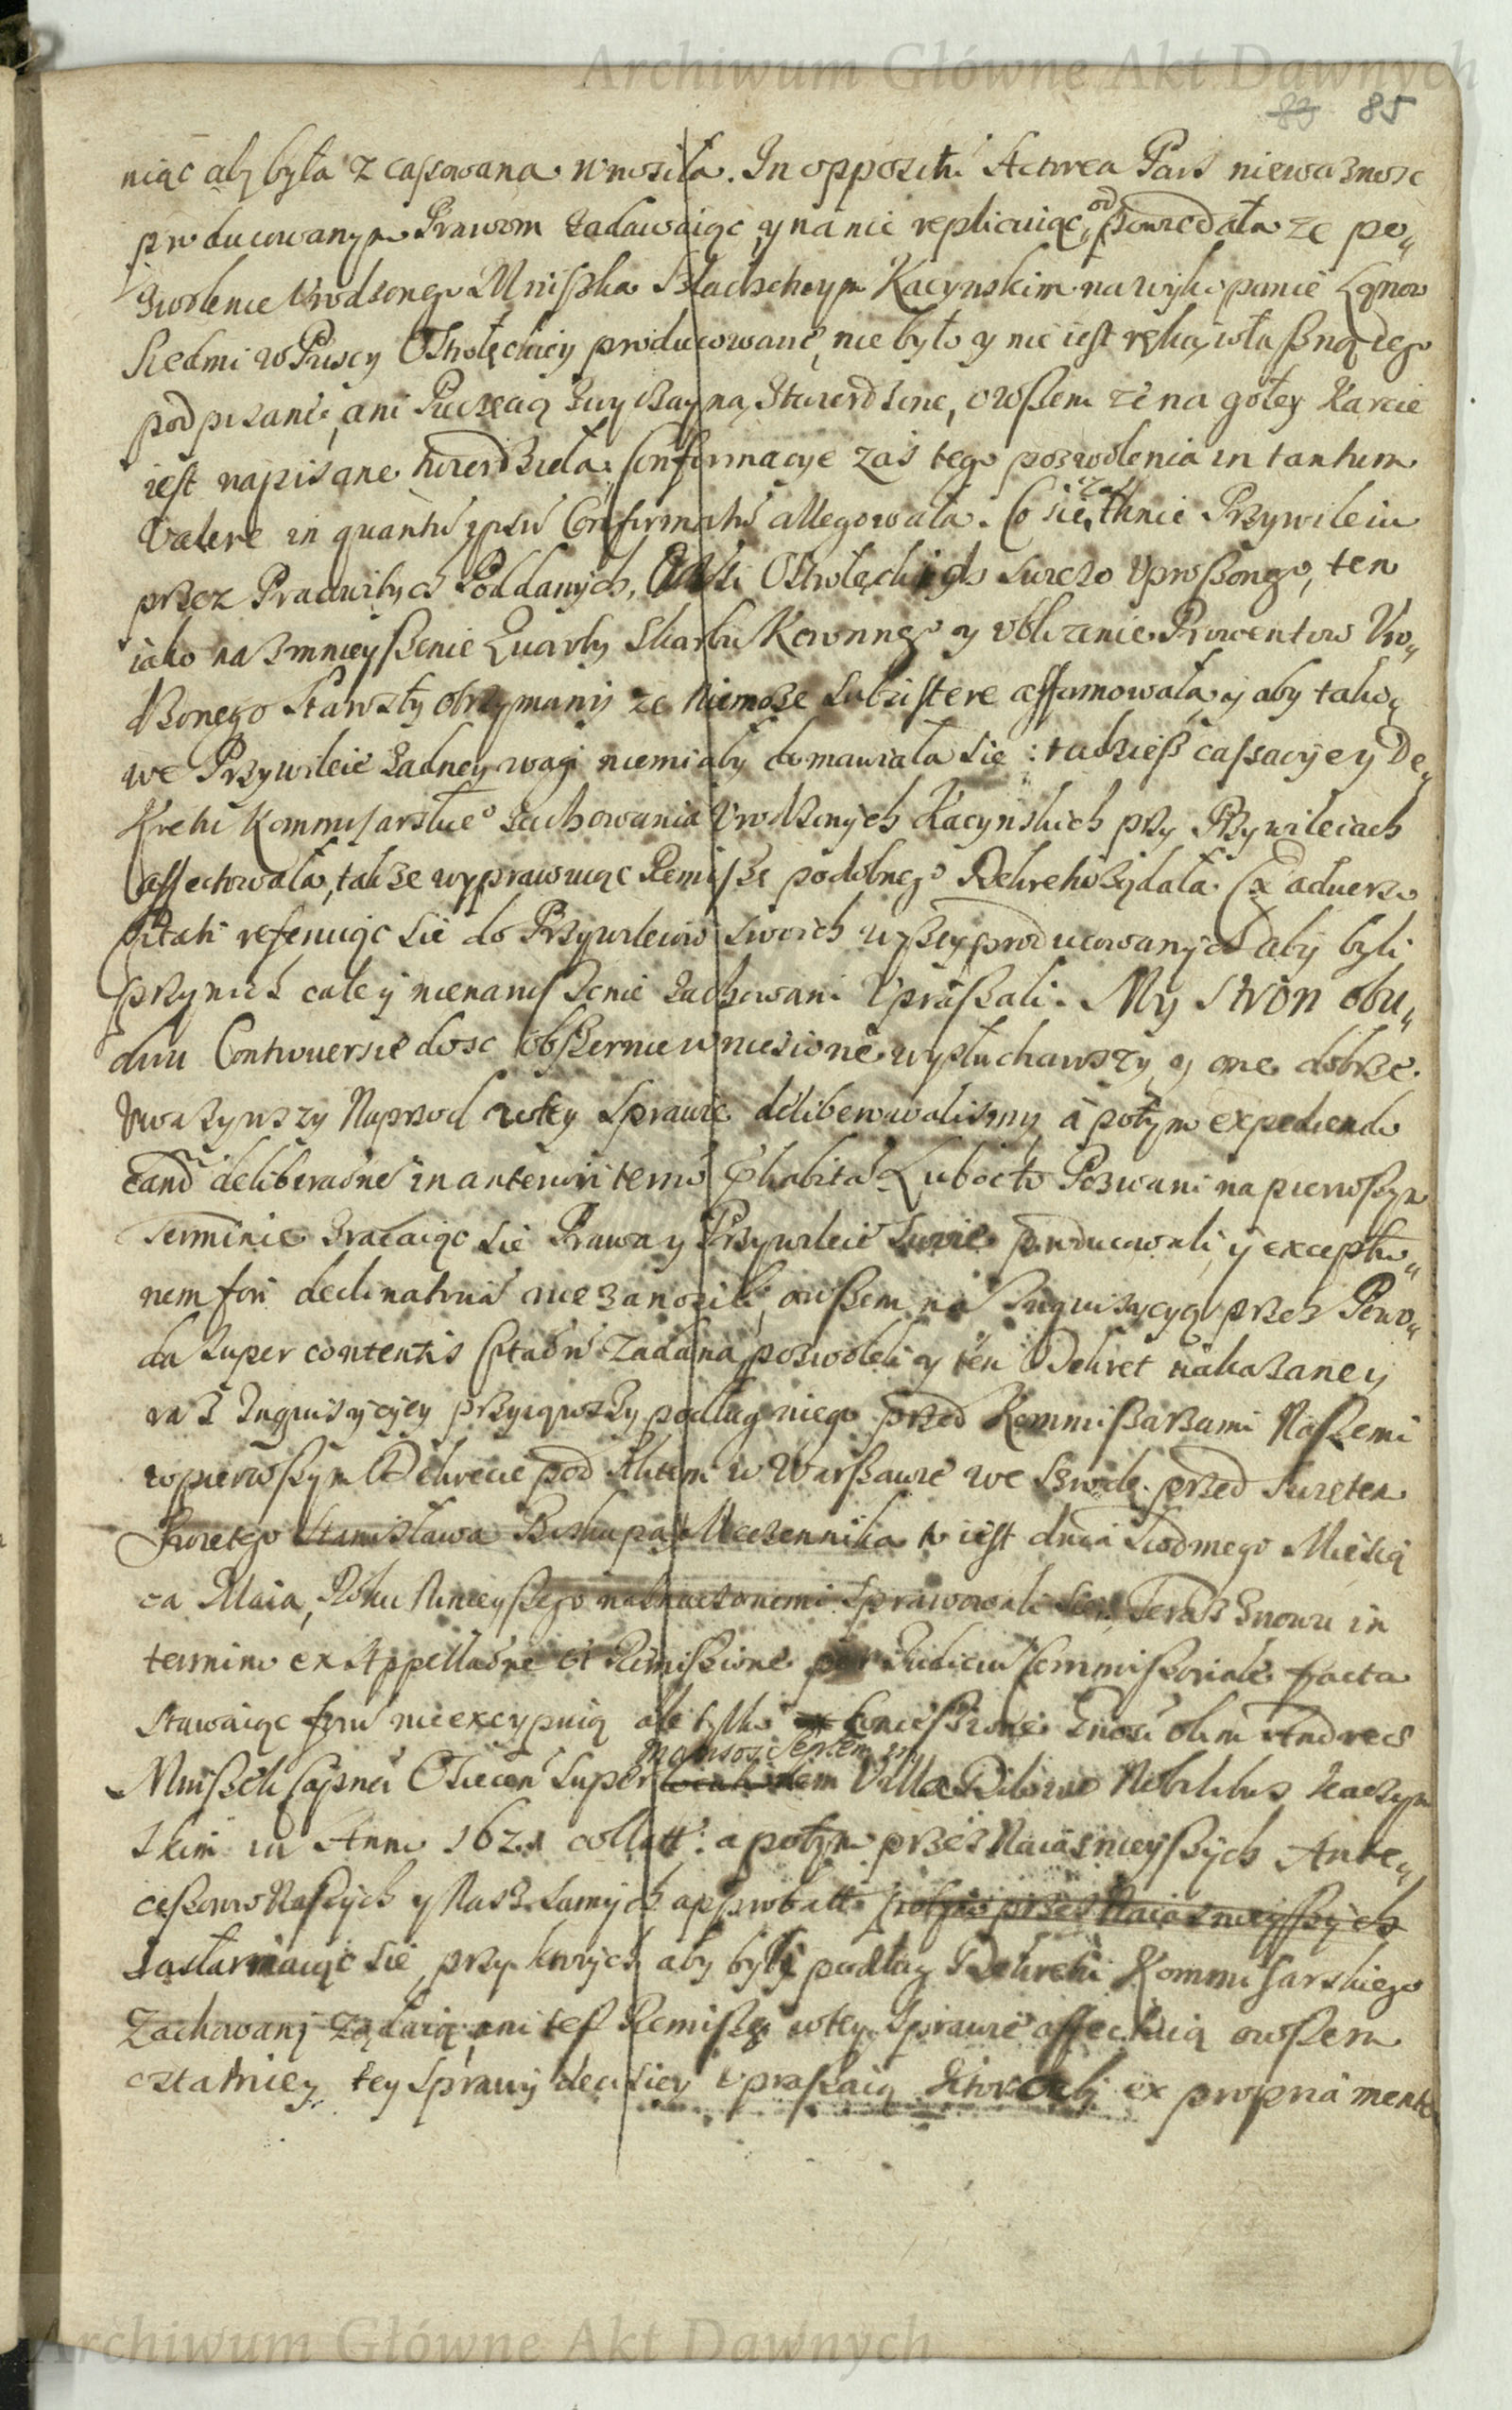 Archiwum Główne Akt Dawnych
83 85
niąc aby była z cassowana wnosiła. In opposituˉ Actorea Pars nieważnosc
producowanym Prawom zadawaiąc, y na nie replicuiąc, odpowiedziała ze po„
zwolenie Urodzonego Mniszka Szlachetnym Kaczynskim na wykopanie Łąnow
siedmi w Puscy Ostrołęckiey producowane, nie było y nie iest ręką własną iego
podpisane, ani Pieczecią zwyczayną ztwierdzone, owszem ze na gołey Karcie
iest napisane twierdziła. Confirmacye zaś tego pozwolenia in tantum
valere in quantu ipsu Confirmatu allegowała. Co się zaś tknie Przywileiu
przez Pracowitych Poddanych, Ostrołęckich swiezo uproszonego, ten
iako na zmnieyszenie Quarty Skarbu Koronnego y ubliżenie Prowentow Uro„
dzonego Starosty otrzymany ze niemoże subsistere affirmowała, y aby tako„
we Przywileie zadney wagi niemiały domawiała się: tudziesz cassacyey De„
kretu Kommisarskie° zachowania Urodzonych Kaczynskich przy Przywileiach
affectowała, także wyprawuiąc Remissę podobnego Dekretu żądała. Ex adverso
Citati referuiąc się do Przywileiow swoich wyszey producowanych aby byli
przy nich cale y nienaruszenie zachowani upraszali. My Stron obu„
dwu Controuersie dosc obszernie wniesione wysłuchawszy, y one dobrze
uważywszy Naprzod w tey Sprawie deliberowalismy, a potym expediendo
eand deliberaone in anteriori termo exhabita Lubocto Pozwani na pierwszym
Terminie zracaiąc się Prawa y Przywileie swoie producowali, y exceptio„
nem fori declinatoria nie zanosili, owszem na Inquisycyą przez Powo„
da super contentis Citaon zadana pozwoleli y ten Dekret nakazaney
raz Inquisycyey przyiąwszy podług niego przed Kommissarzami Naszemi
w pierwszym Dekrecie pod Aktem w Warszawie we Szrodę przed Swiętem
Swietego Stanisława Biskupa y Męczennika to iest dnia Siodmego Miesią
ca Maia, Roku Ninieyszego naznaczonemi sprawowali się, Teraz znowu in
termino ex Appellaone et Remissione per Iudiciu Commissoriale facta
stawaiąc foru nieexcypuią ale tylko Concessione Gnosi olim Andreae
Mniszek Capnei Osiecen super mansos septem in Villa Dilowo Nobilibus Kaczyn
skim in Anno 1621 collatt: a potym przez Naiasnieyszych Ante„
cessorow Naszych y Nasz samych approbatt potym przez Naiasnieyszych
zasłaniaiąc się, przy ktorych aby byli podług Dekretu Kommisarskiego
zachowani żądaią, ani tesz Remissy w tey Sprawie affectuią owszem
ostatniey tey Sprawy decisiey upraszaią ex propria mente
Archiwum Główne Akt Dawnych